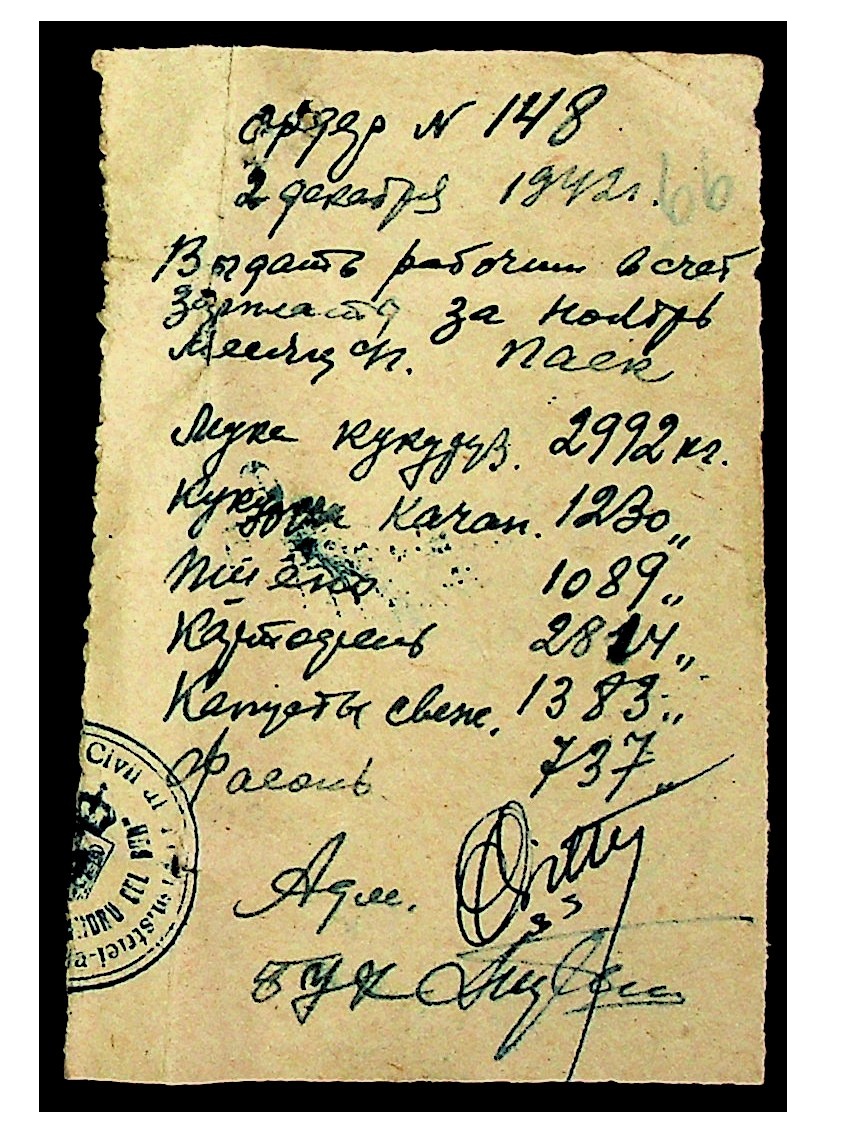 ордер N 148
2 декабря 1942г.
66
Выдать рабочим в счет
Зарплаты за Ноябрь
Месяц м. Паек
Мука кукуруз. 2992 кг.
Кукурузы Качан. 1230 „
Пшено 1089 „
Картофель 2814 „
Капусты свеж. 1383 „
Фасоль 737 „
Адм.
Бух
Civil